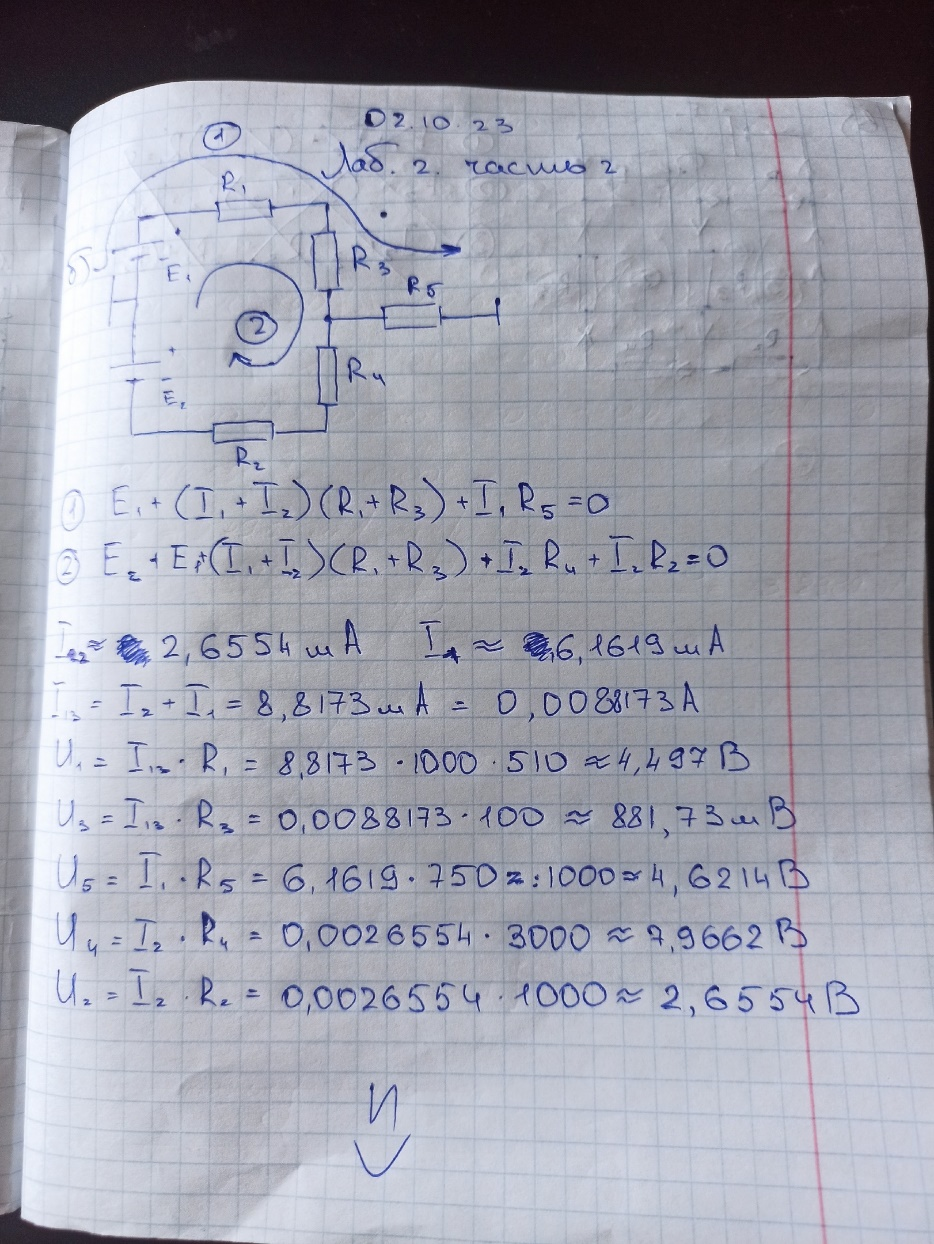 02.10.23
Лаб. 2. часть 2
1
R₁
E₁
R₃
R₅
2
R₄
+
E₂
R₂
① E₁ + (I₁ + I₂)(R₁ + R₃) + I₁ R₅ = 0
② E₂ + E₁ + (I₁ + I₂)(R₁ + R₃) + I₂ R₄ + I₂ R₂ = 0
≈ 2,6554 мА I₁ ≈ 6,1619 мА
I₁₃ = I₂ + I₁ = 8,8173 мА = 0,0088173 А
U₁ = I₁₃ · R₁ = 8,8173 · 1000 · 510 ≈ 4,497 В
U₃ = I₁₃ · R₃ = 0,0088173 · 100 ≈ 881,73 мВ
U₅ = I₁ · R₅ = 6,1619 · 750 : 1000 ≈ 4,6214 В
U₄ = I₂ · R₄ = 0,0026554 · 3000 ≈ 7,9662 В
U₂ = I₂ · R₂ = 0,0026554 · 1000 ≈ 2,6554 В